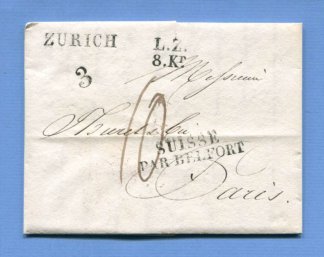 ZURICH L.Z.
3 8.Kr
Messieurs
SUISSE
PAR BELFORT
Paris.